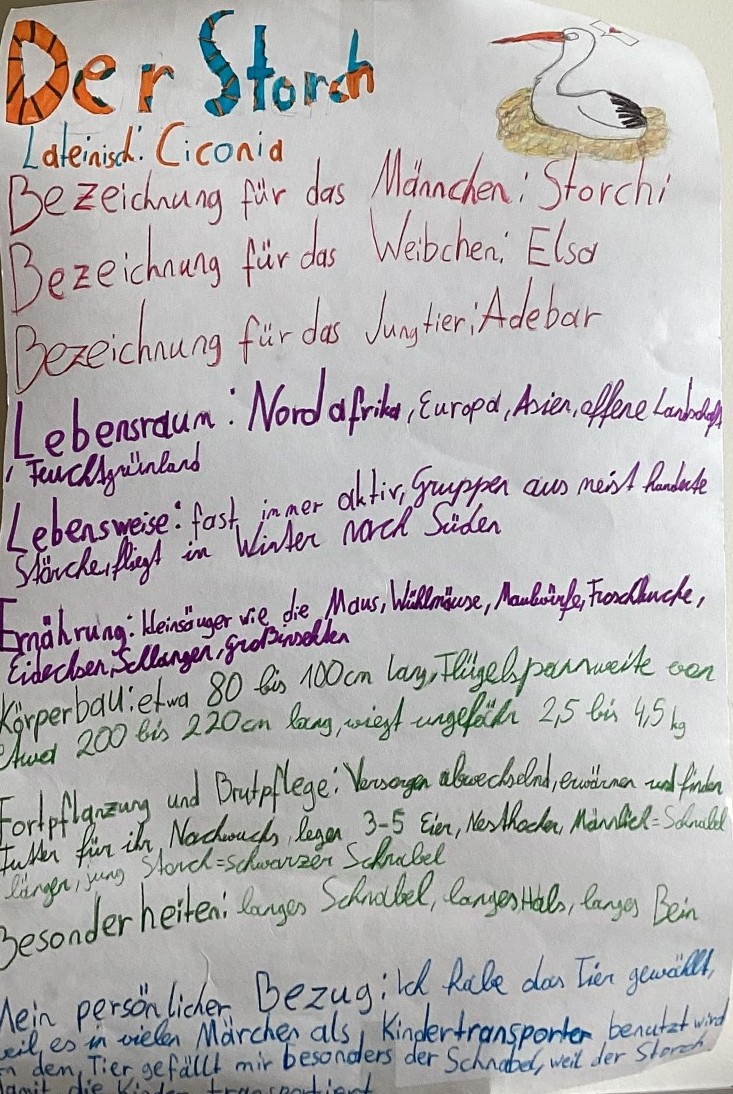 Der Storch
Lateinisch: Ciconia
Bezeichnung für das Männchen: Storchi
Bezeichnung für das Weibchen: Elsa
Bezeichnung für das Jungtier: Adebar
Lebensraum: Nordafrika, Europa, Asien, offene Landschaft
, Feuchtgrünland
Lebensweise: fast immer aktiv, Gruppen aus meist hunderte
Störche, fliegt in Winter nach Süden
Ernährung: kleinsäuger wie die Maus, Wühlmäuse, Maulwürfe, Froschlurche,
Eidechsen, Schlangen, Großinsekten
Körperbau: etwa 80 bis 100cm lang, Flügelspannweite von
etwa 200 bis 220cm lang, wiegt ungefähr 2,5 bis 4,5 kg
Fortpflanzung und Brutpflege: Versorgen abwechselnd, erwärmen und finden
Futter für ihr Nachwuchs, legen 3-5 Eier, Nesthocker, Männlich = Schnabel
länger, jung Storch = schwarzer Schnabel
Besonderheiten: langes Schnabel, langes Hals, langes Bein
Mein persönlicher Bezug: Ich habe das Tier gewählt,
weil es in vielen Märchen als Kindertransporter benutzt wird
An dem Tier gefällt mir besonders der Schnabel, weil der Storch
damit die Kinder transportiert